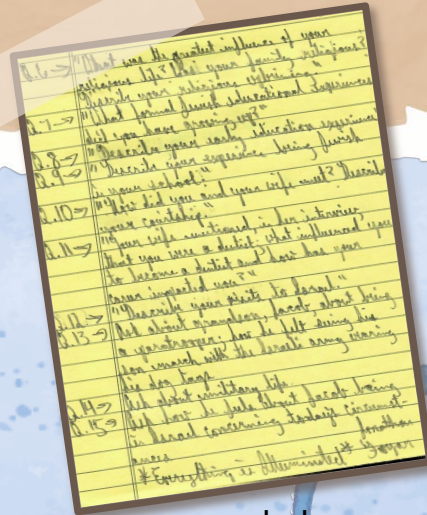 Q.6→ "What was the greatest influence of your
religious life? Was your family religious?
Describe your religious upbringing."
Q.7→ "What formal Jewish educational experiences
did you have growing up?"
Q.8→ "Describe your early education experience"
Q.9→ "Describe your experience being Jewish
in your school."
Q.10→ "How did you and your wife meet? Describe
your courtship."
Q.11→ "Your wife mentioned in her interview
that you were a dentist. What influenced you
to become a dentist and how has your
career impacted you?"
Q.12→ "Describe your visits to Israel."
Q.13→ Ask about grandson, Jacob, about being
a paratrooper; how he felt seeing his
son march with the Israeli army wearing
his dog tags.
Q.14→ Ask about military life.
Q.15→ Ask how he feels about Jacob being
in Israel concerning today's circumst-
ances.
*Everything is Illuminated* Jonathan